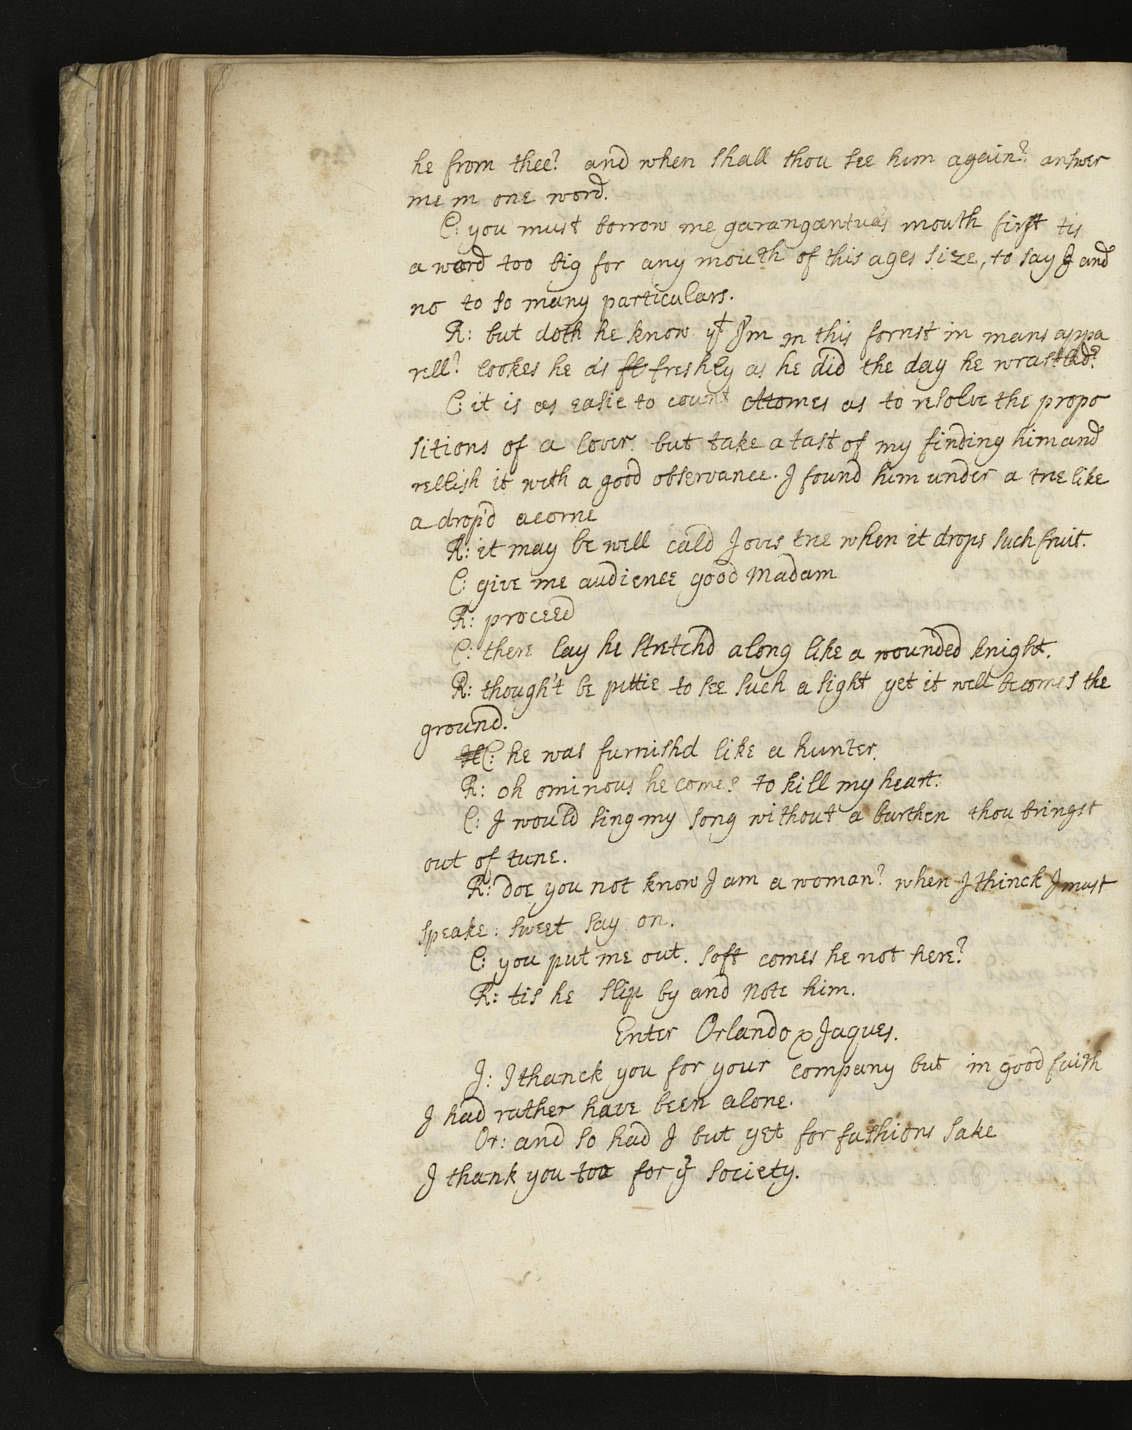 he from thee? and when shall thou see him again? answer
me in one word.
C: you must borrow me garangantua's mouth first tis
a word too big for any mouth of this ages size, to say I and
no to so many particulars.
R: but doth he know yt I'm in this forrist in mans appa
rell? lookes he as freshly as he did the day he wrastled?
C: it is as easie to count attomes as to resolve the propo
sitions of a lover. but take a tast of my finding him and
rellish it with a good observance. I found him under a tree like
a drop'd acorne
R: it may be well cald Joves tree when it drops such fruit.
C: give me audience good Madam
R: proceed
C: there lay he stretchd along like a wounded knight.
R: though't be pittie to see such a sight yet it well becomes the
ground.
C: he was furnishd like a hunter.
R: oh ominous he comes to kill my heart.
C: I would sing my song without a burthen thou bringst
out of tune.
R: doe you not know I am a woman? when I thinck I must
speake: sweet say on.
C: you put me out. soft comes he not here?
R: tis he slip by and note him.
Enter Orlando & Jaques.
J: I thanck you for your company but in good faith
I had rather have been alone.
Or: and so had I but yet for fashions sake
I thank you too for yr society.